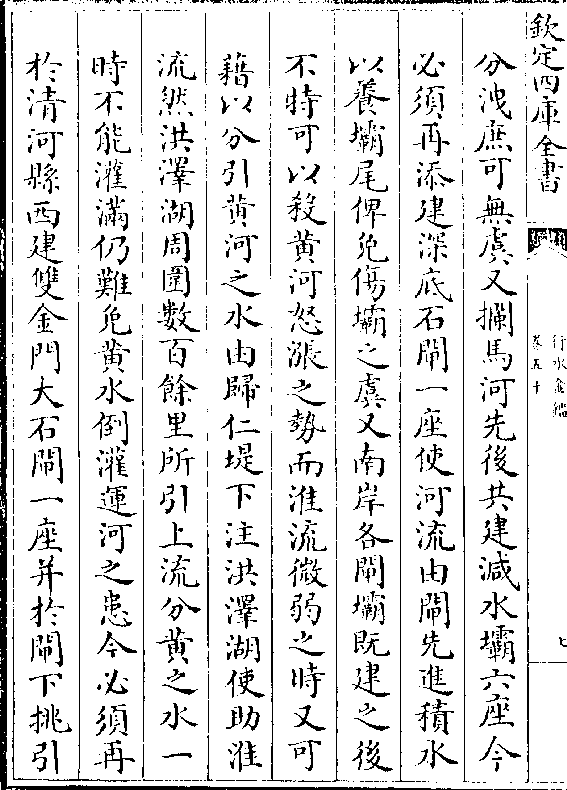 欽定四庫全書
行水金鑑
卷五十
七
分洩庶可無虞又攔馬河先後共建減水壩六座今
必須再添建深底石閘一座使河流由閘先進積水
以養壩尾俾免傷壩之虞又南岸各閘壩既建之後
不特可以殺黄河怒漲之勢而淮流微弱之時又可
藉以分引黄河之水由歸仁堤下注洪澤湖使助淮
流然洪澤湖周圍數百餘里所引上流分黄之水一
時不能灌滿仍難免黄水倒灌運河之患今必須再
於清河縣西建雙金門大石閘一座并於閘下挑引